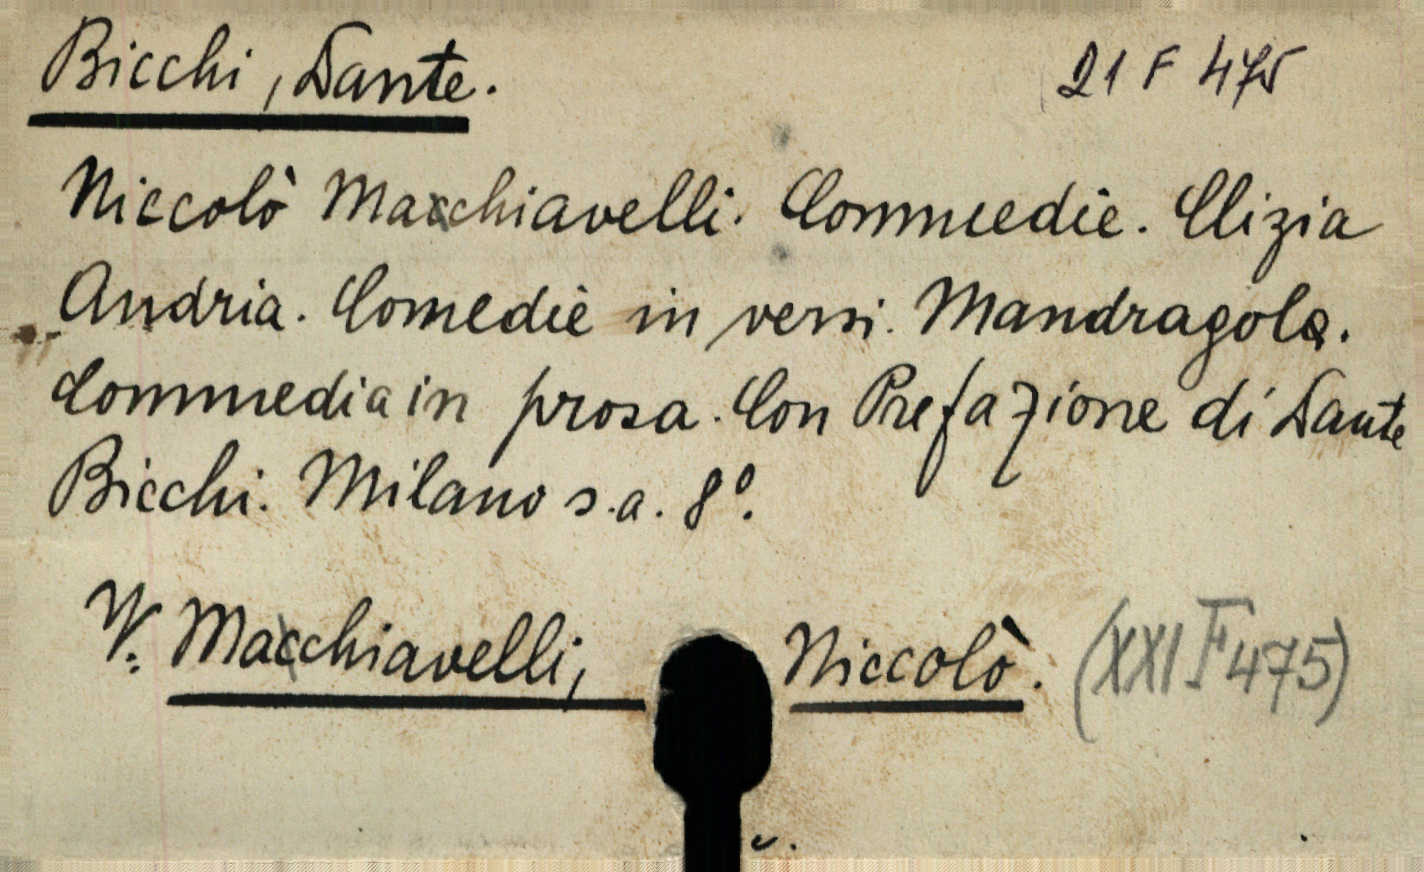 Bicchi, Dante. 21 F 475
Niccolò Macchiavelli. Commedie. Clizia
Andria. Comedie in versi. Mandragola.
Commedia in prosa. Con Prefazione di Dante
Bicchi. Milano s.a. 8º.
V. Macchiavelli, Niccolò. (XXI F 475)